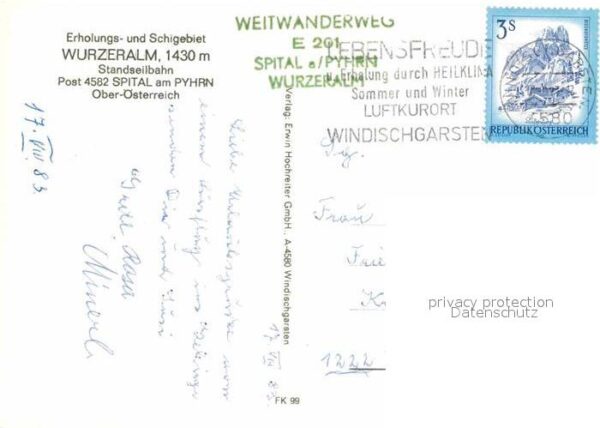 Erholungs- und Schigebiet
WURZERALM, 1430 m
Standseilbahn
Post 4582 SPITAL am PYHRN
Ober-Österreich
WEITWANDERWEG
E 201
SPITAL a/PYHRN
WURZERALM
LEBENSFREUDE
u. Erholung durch HEILKLIMA
Sommer und Winter
LUFTKURORT
WINDISCHGARSTEN
3 S
REPUBLIK ÖSTERREICH
4580
17. VIII 83
Liebe Urlaubsgrüße von
einem Ausflug ins Gebirge
senden Dir und
Gretl, Rosa
Verlag: Erwin Hochreiter GmbH., A-4580 Windischgarsten
17 VIII 83
Frau
1222
FK 99
privacy protection
Datenschutz